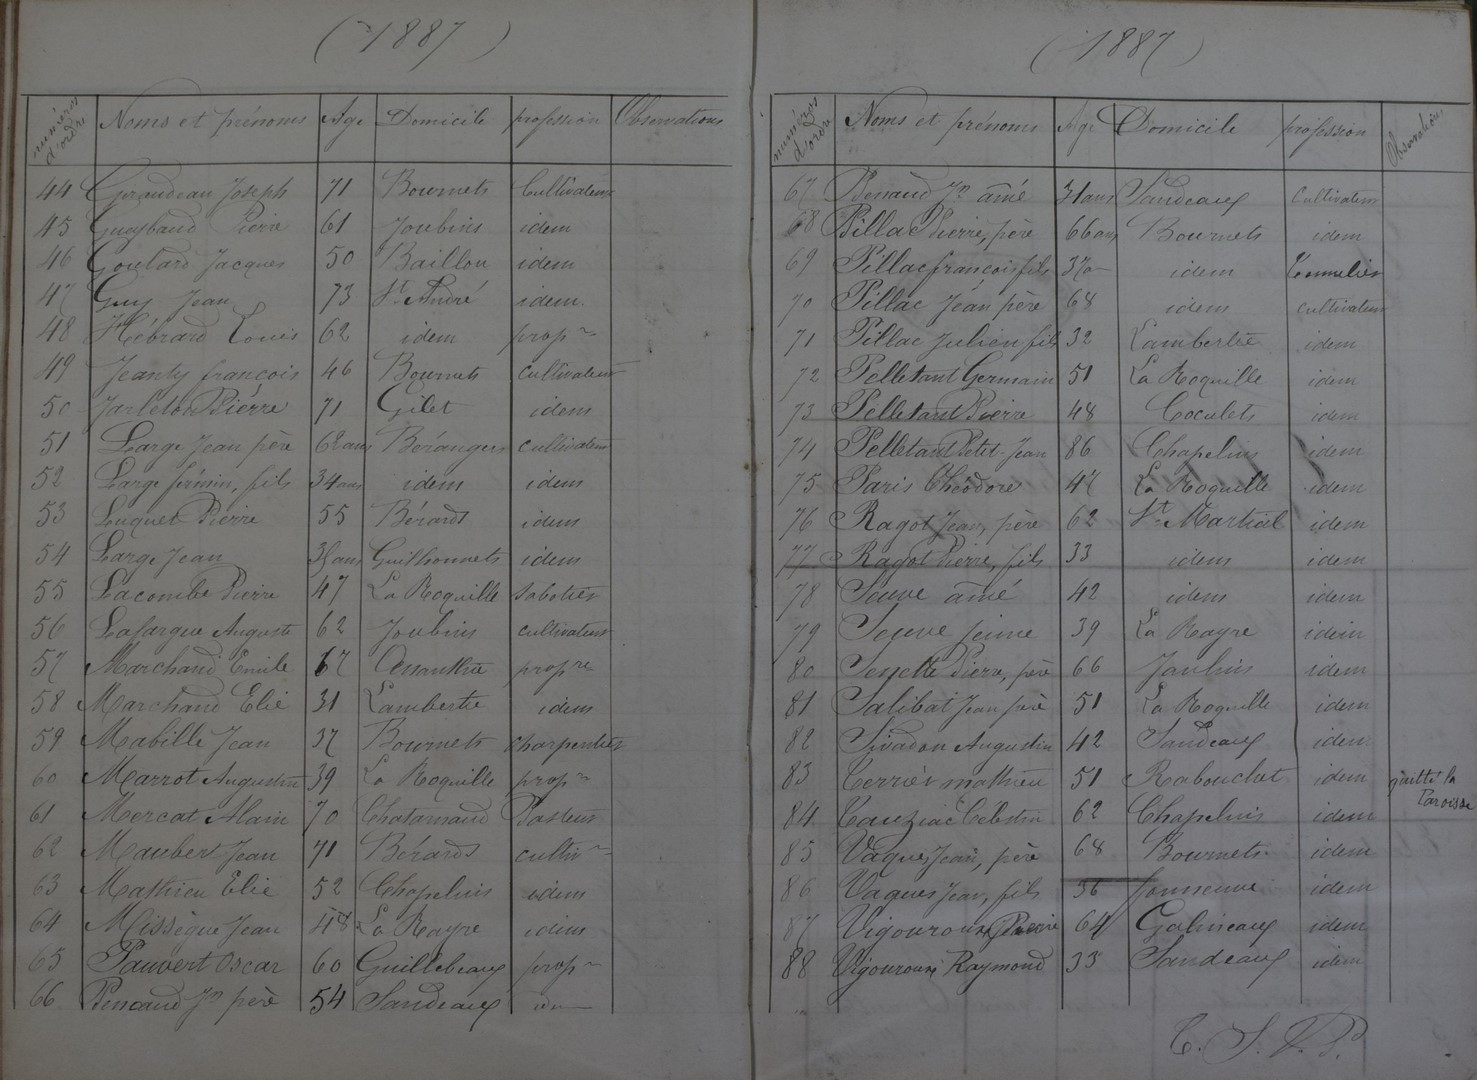 (1887)
numéros d'ordre Noms et prénoms Age Domicile profession Observations
44 Giraudeau Joseph 71 Bournets Cultivateur
45 Pierre 61 Joubins idem
46 Goulard Jacques 50 Baillou idem
47 Guy Jean 73 St André idem
48 Hébrard Louis 62 idem propre
49 Jeanty françois 46 Bournets Cultivateur
50 Jarleton Pierre 71 Gilet idem
51 Large Jean père 62 ans Bérangers cultivateur
52 Large firmin, fils 34 ans idem idem
53 Luquet Pierre 55 Bérards idem
54 Large Jean ans Guilhonnets idem
55 Lacombe Pierre 47 La Roquille Sabotier
56 Lafargue Auguste 62 Joubins cultivateur
57 Marchand Emile 67 propre
58 Marchand Elie 31 Lambertie idem
59 Mabille Jean 37 Bournets charpentier
60 Marrot Augustin 39 La Roquille propre
61 Mercat Alain 70 Pasteur
62 Maubert Jean 71 Bérards cultivr
63 Mathieu Elie 52 Chapelins idem
64 Missègue Jean 48 La Rayre idem
65 Pauvert Oscar 60 Guillebeaux propre
66 Jn père 54 Sandeaux idem
(1887)
numéros d'ordre Noms et prénoms Age Domicile profession Observations
67 Jn aîné 31 ans Sandeaux Cultivateur
68 Pillac Pierre, père 66 ans Bournets idem
69 Pillac françois fils 37 idem Tonnelier
70 Pillac Jean père 68 idem cultivateur
71 Pillac Julien fils 32 Lambertie idem
72 Pelletant Germain 51 La Roquille idem
73 Pelletant Pierre 48 Coculets idem
74 Pelletant Petit-Jean 86 Chapelins idem
75 Paris Théodore 47 La Roquille idem
76 Ragot Jean, père 62 St Martial idem
77 Ragot Pierre, fils 33 idem idem
78 Souve aîné 42 idem idem
79 Souve jeune 39 La Rayre idem
80 Pierre, père 66 Joubins idem
81 Salibat Jean père 51 La Roquille idem
82 Sivadon Augustin 42 Sandeaux idem
83 Terrier mathieu 51 Rabouchet idem quitté la
Paroisse
84 Tauziac Célestin 62 Chapelins idem
85 Vaques Jean, père 68 Bournets idem
86 Vaques Jean, fils 36 idem
87 Vigouroux Pierre 64 Galineaux idem
88 Vigouroux Raymond 33 Sandeaux idem
T. S. V. P.